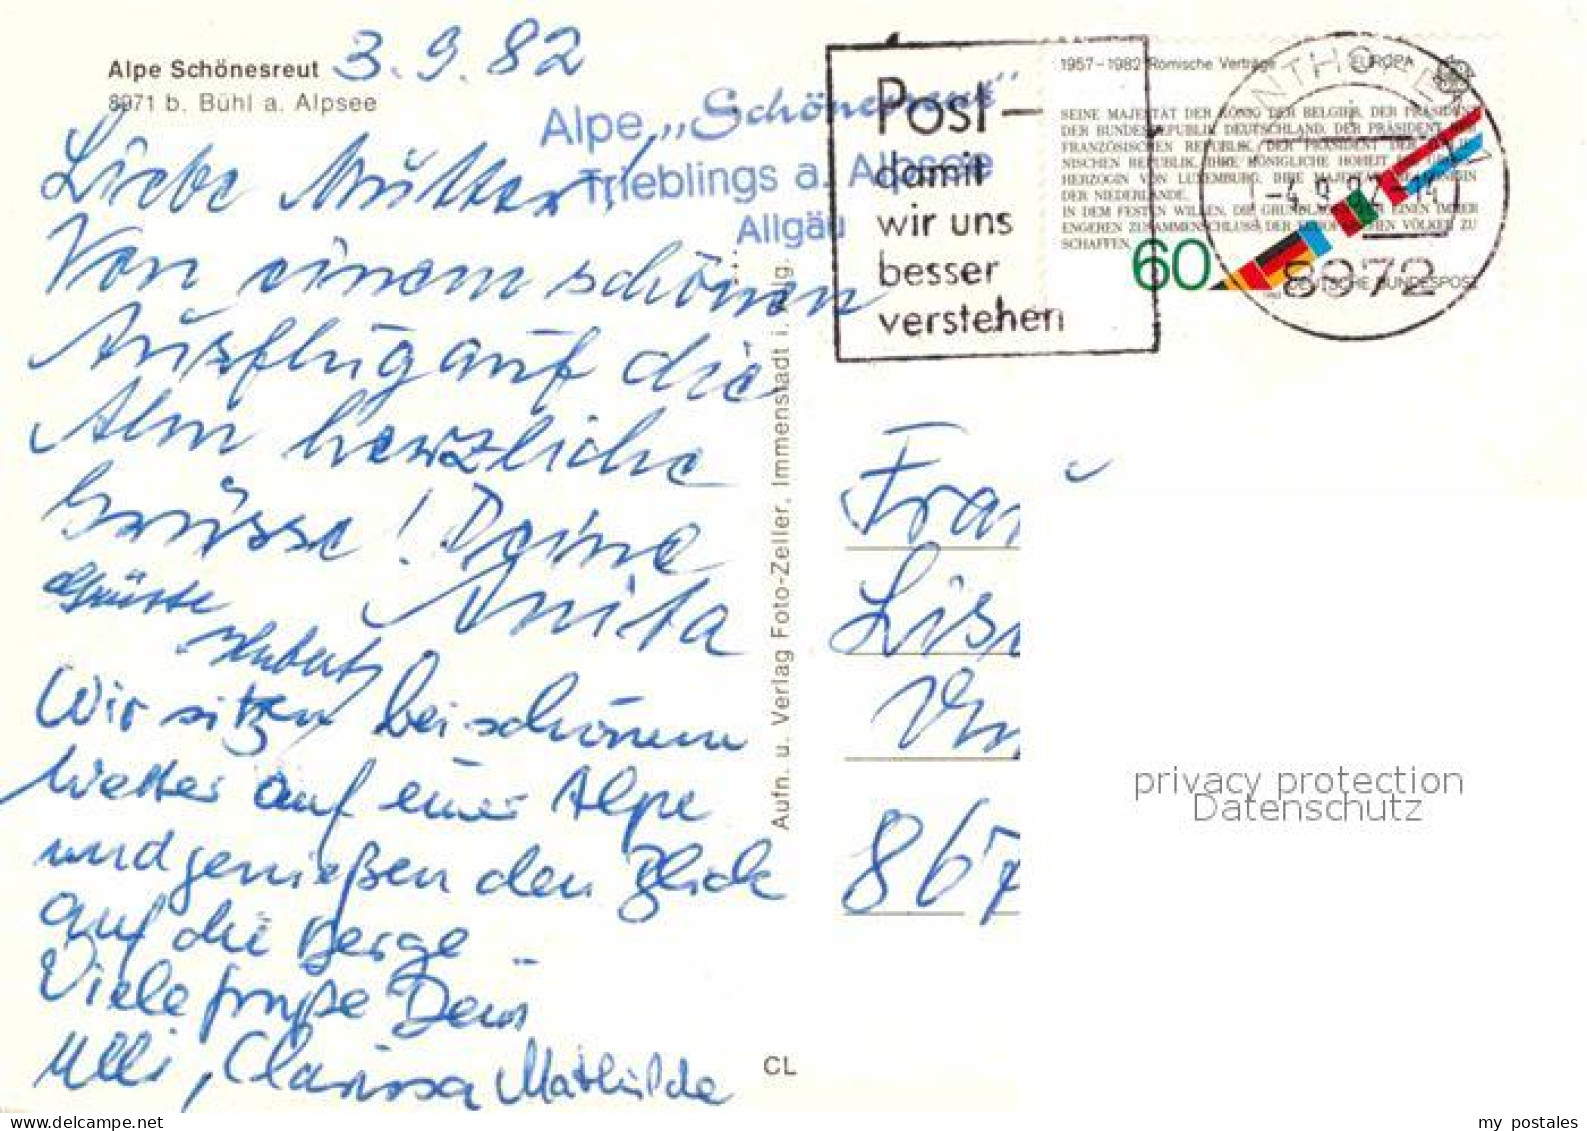 Alpe Schönesreut 3.9.82
8971 b. Bühl a. Alpsee
Alpe „Schönesreut"
Trieblings a. Alpsee
Allgäu
Liebe Mutter!
Von einem schönen
Ausflug auf die
Alm herzliche
Grüsse! Deine
Anita
Grüsse
Hubert
Wir sitzen bei schönem
Wetter auf einer Alpe
und genießen den Blick
auf die Berge
Viele Grüße Dein
Ulli, Clarissa Mathilde
Aufn. u. Verlag Foto-Zeller, Immenstadt i. Allg.
CL
Post –
damit
wir uns
besser
verstehen
1957–1982 Römische Verträge EUROPA
SEINE MAJESTÄT DER KÖNIG DER BELGIER, DER PRÄSIDENT
DER BUNDESREPUBLIK DEUTSCHLAND, DER PRÄSIDENT DER
FRANZÖSISCHEN REPUBLIK, DER PRÄSIDENT DER ITALIE-
NISCHEN REPUBLIK, IHRE KÖNIGLICHE HOHEIT DIE GROSS-
HERZOGIN VON LUXEMBURG, IHRE MAJESTÄT DIE KÖNIGIN
DER NIEDERLANDE,
IN DEM FESTEN WILLEN, DIE GRUNDLAGEN FÜR EINEN IMMER
ENGEREN ZUSAMMENSCHLUSS DER EUROPÄISCHEN VÖLKER ZU
SCHAFFEN,
60
1982 DEUTSCHE BUNDESPOST
SONTHOFEN 1
-4.9.82-14
8972
Frau
Lis
867
privacy protection
Datenschutz
my postales